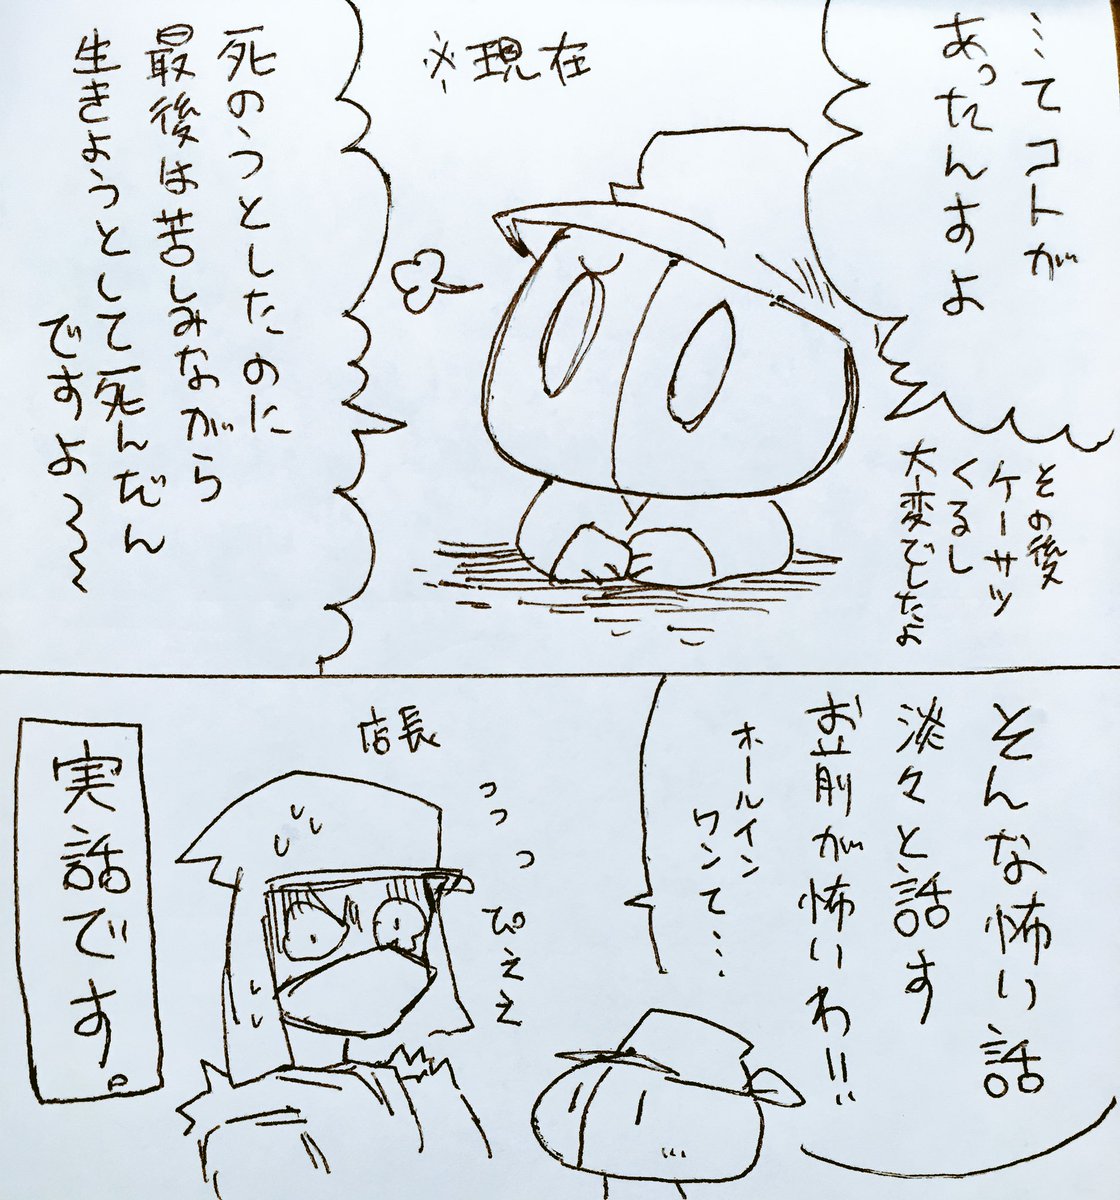 …てコトが
あったんすよ
※現在
その後
ケーサツ
くるし
大変でしたよ
死のうとしたのに
最後は苦しみながら
生きようとして死んだん
ですよ〜〜
そんな怖い話
淡々と話す
お前が怖いわ!!
ホールイン
ワンて…
店長
っっっ
ぴええ
実話です。